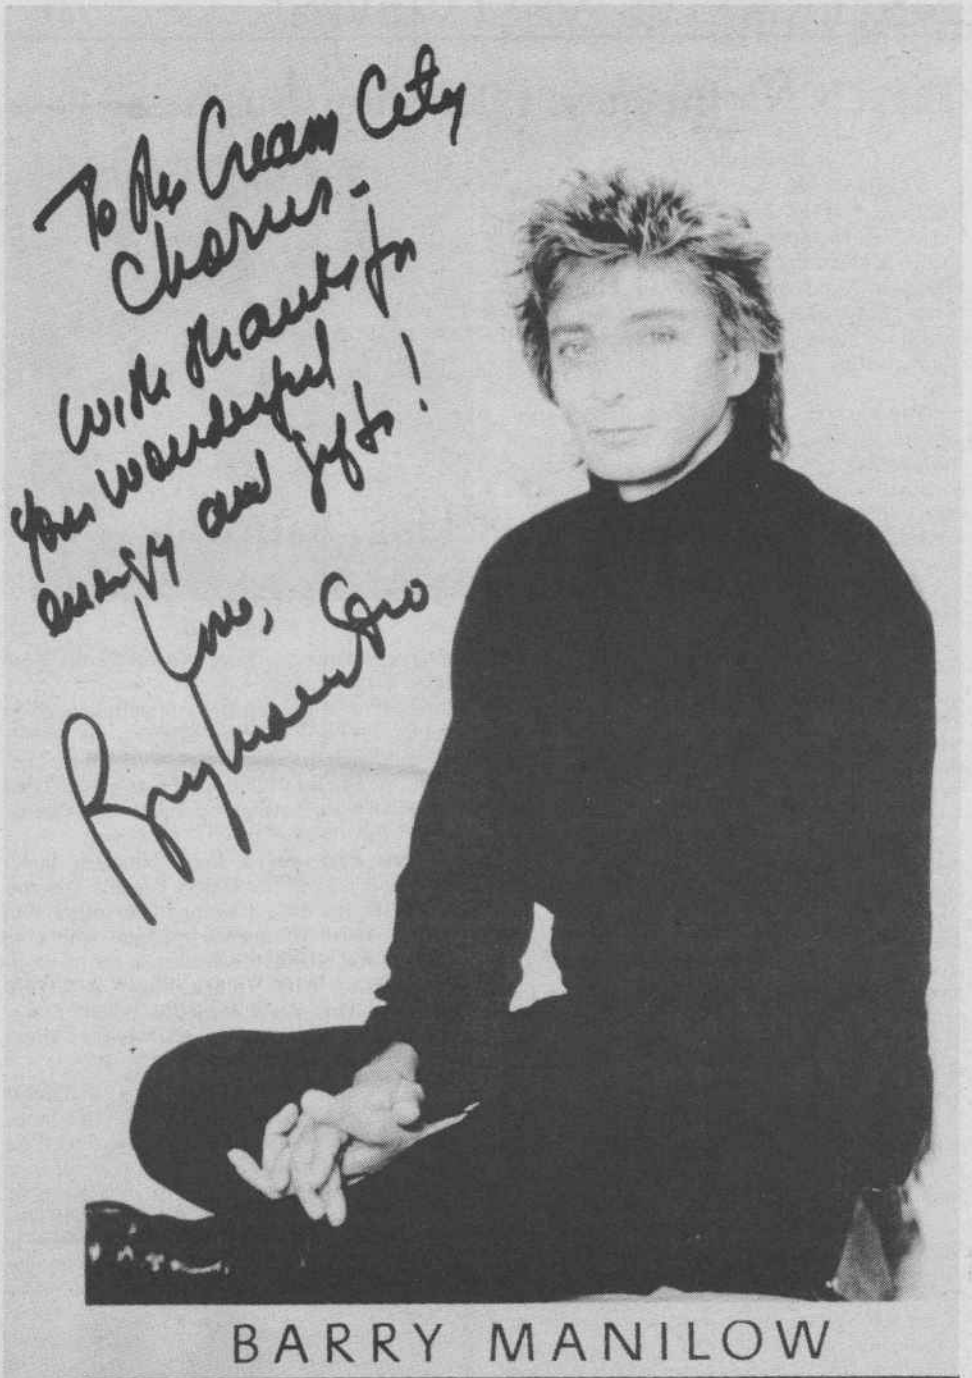 To the Cream City
Chorus -
with thanks for
your wonderful
energy and gifts!
Love,
Barry Manilow
BARRY MANILOW